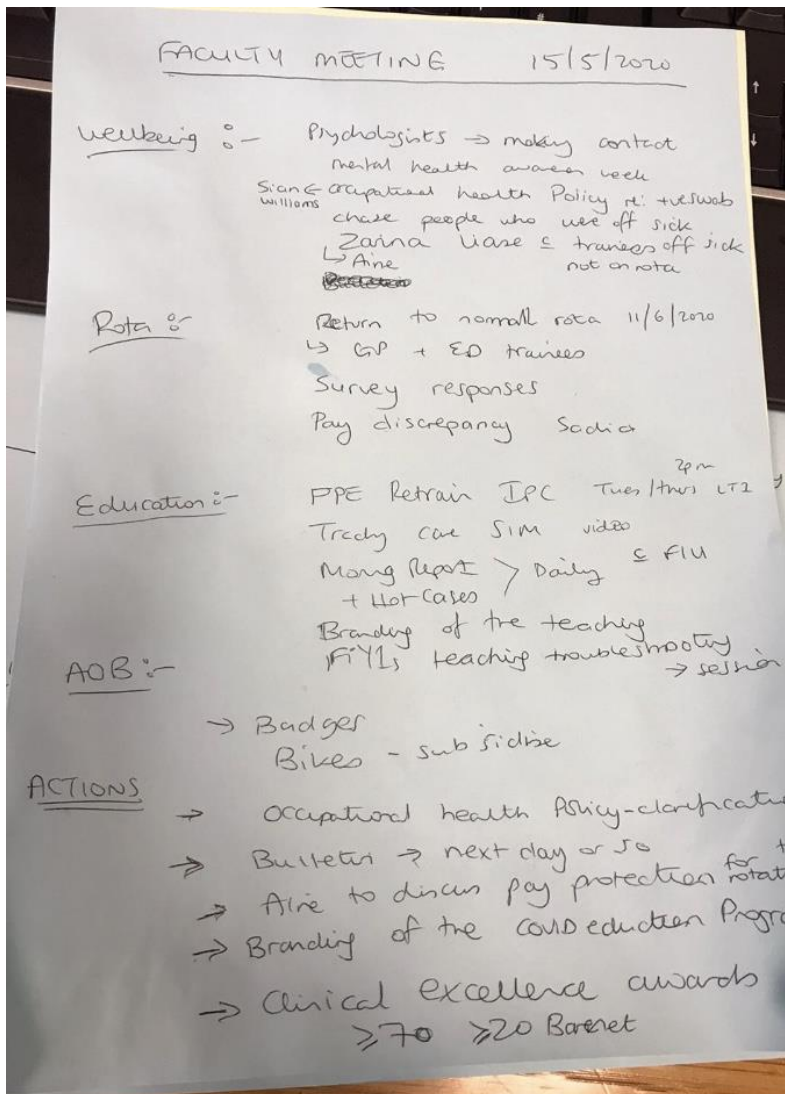 FACULTY MEETING 15/5/2020
Wellbeing :- Psychologists → making contact
mental health awareness week
Sian Williams ← occupational health Policy re: +ve swab
chase people who were off sick
Zarina liase c trainees off sick
↳ Aine not on rota
Rota :- Return to normal rota 11/6/2020
↳ GP + ED trainees
Survey responses
Pay discrepancy Sadia
Education :- PPE Retrain IPC Tues/thurs 2pm LT2
care SIM video
Morng Report > Daily c FIU
+ Hot Cases
Branding of the teaching
FiY1s teaching troubleshooting
→ session
AOB :-
→ Badges
Bikes - subsidise
ACTIONS
→ Occupational health Policy - clarificatio
→ Bulletin → next day or so
→ Aine to discuss pay protection for rotat
→ Branding of the COVID eduction Progra
→ Clinical excellence awards
≥70 ≥20 Barenet